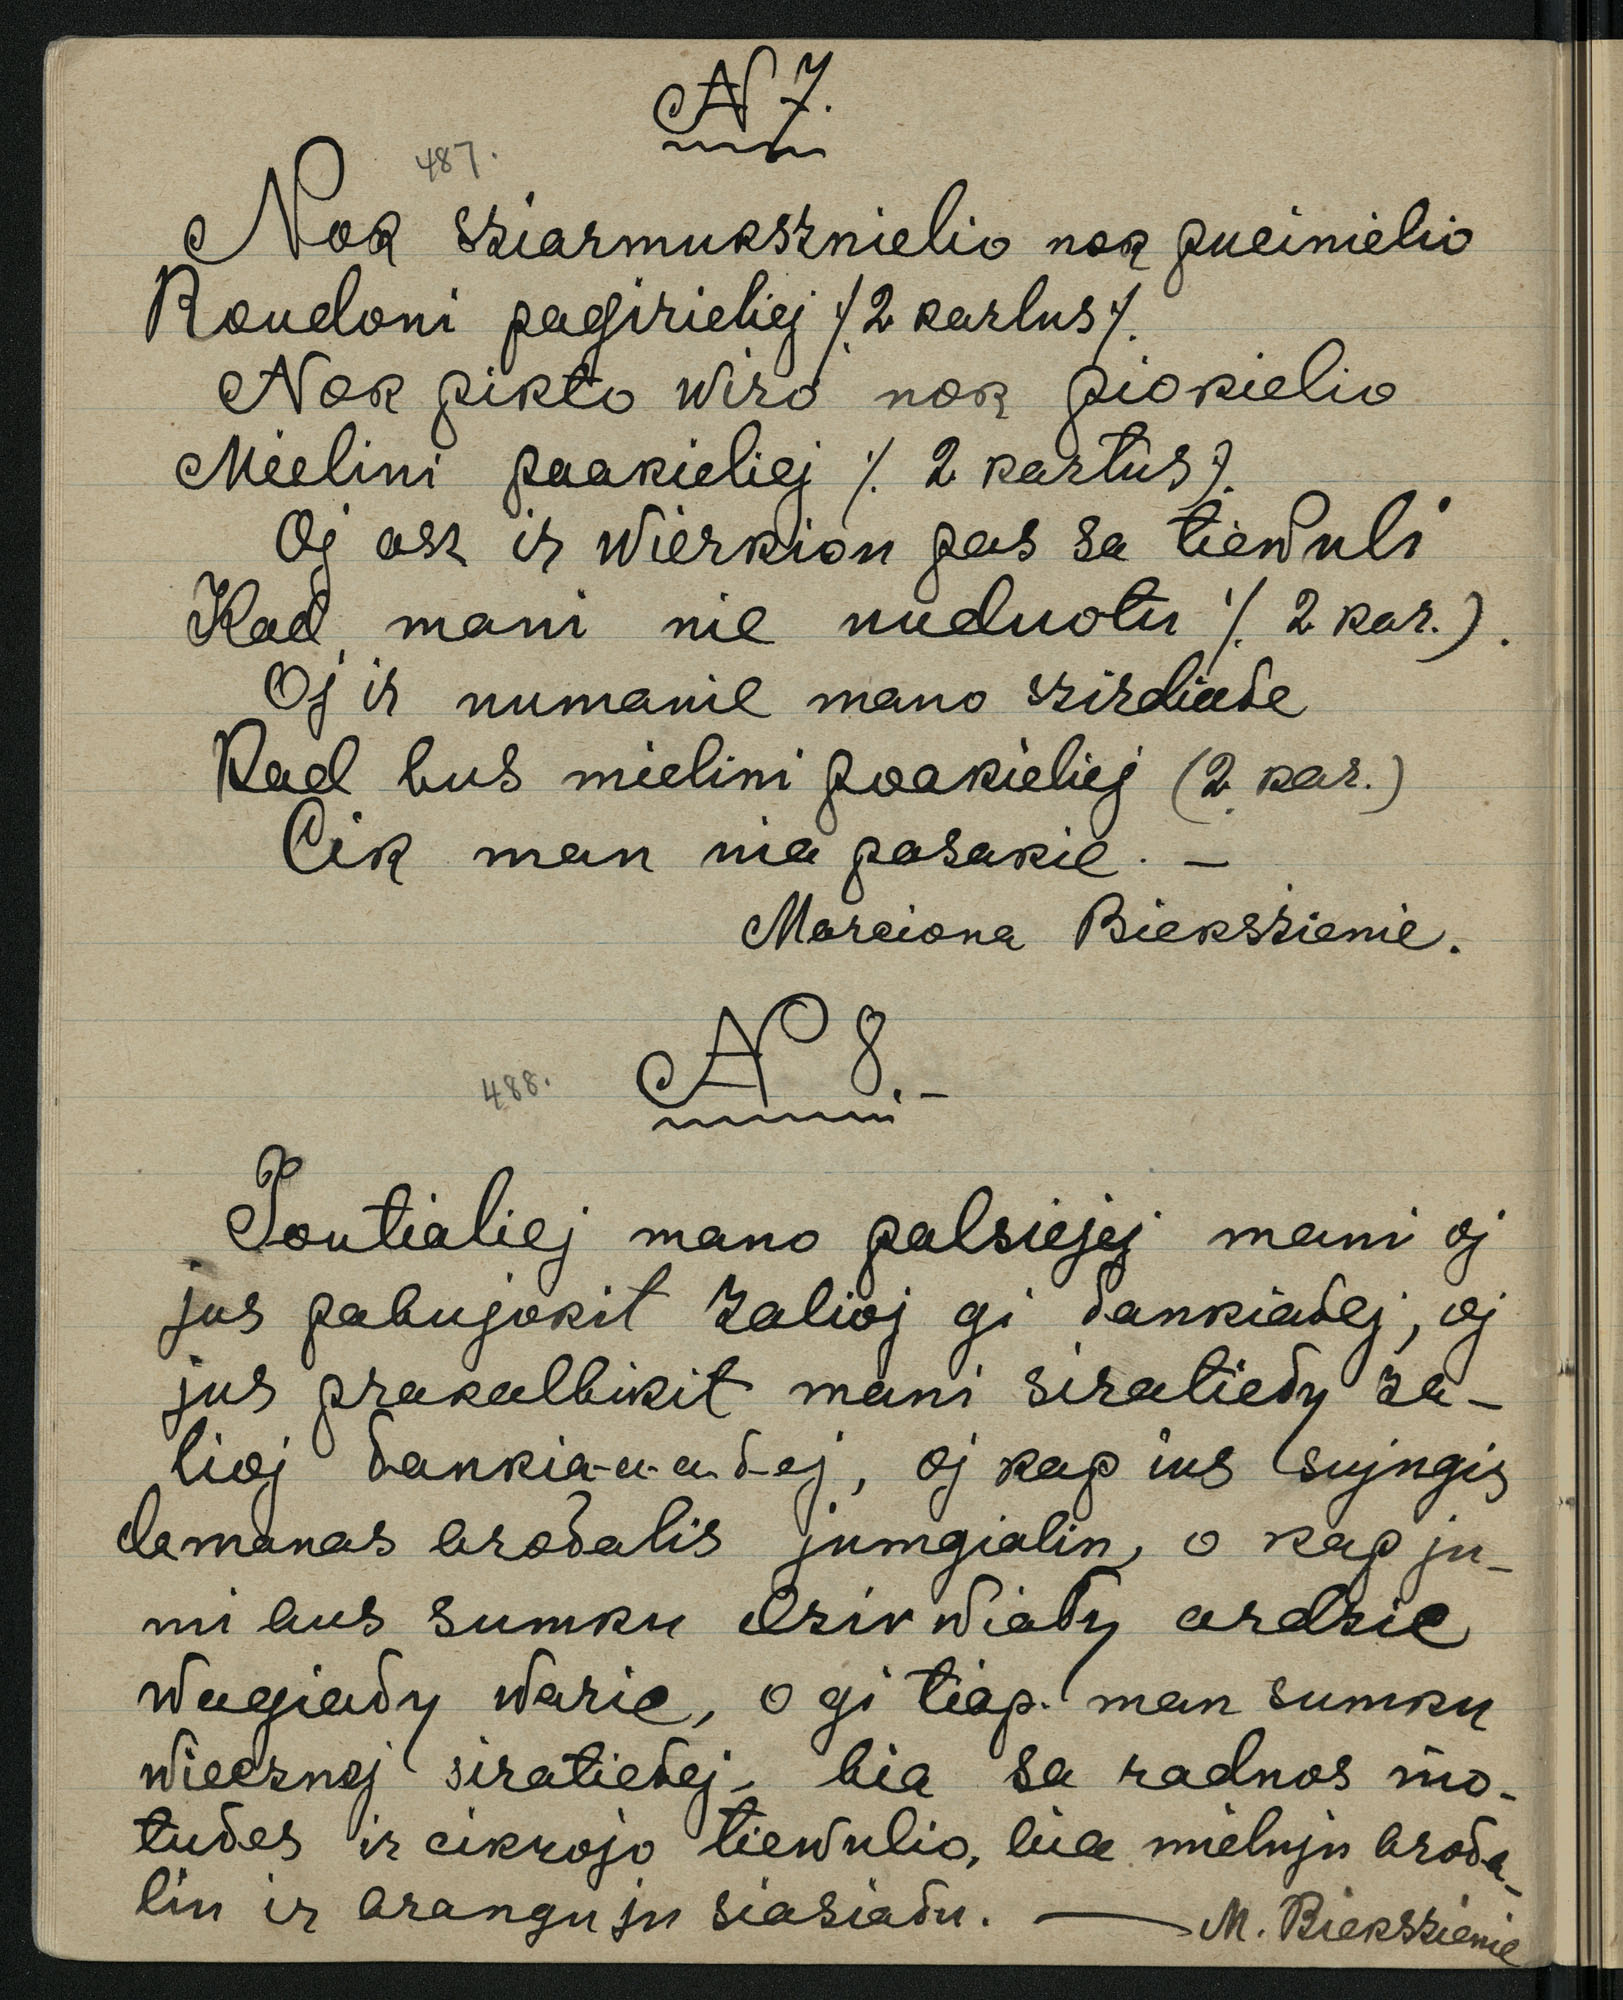 N 7.
487.
Nok sziarmuksznielio nok pucinielio
Roudoni pagirieliej /2 kartus/.
Nok pikto wiro nok piokielio
Mielini paakieliej /. 2 kartus/.
Oj asz ir wierkion pas sa tiewuli
Kad mani nie nuduotu /. 2 kar.).
Oj ir numanie mano szirdiałe
Kad bus mielini paakieliej (2 kar.)
Cik man nia pasakie. —
Marciona Biekszienie.
N 8.—
488.
Pontialiej mano palsiejej mani oj
jus pabujokit zalioj gi łankiałej, oj
jus prakalbikit mani siratieły za-
lioj łankia-a-a-ł-ej, oj kap ius sujngis
damanas brołalis jumgialin, o kap ju-
mi bus sumku dzirwiały ardzie
wagiały warie, o gi tiap. man sumku
wiecznej siratiełej, bia sa radnos mo-
tułes ir cikrojo tiewulio, bia mieluju broła-
lin ir branguju siasiału. — M. Biekszienie